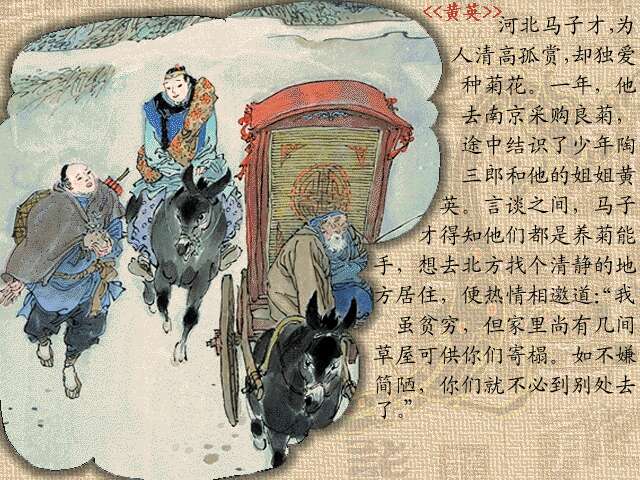 <<黄英>>
河北马子才,为
人清高孤赏,却独爱
种菊花。一年,他
去南京采购良菊,
途中结识了少年陶
三郎和他的姐姐黄
英。言谈之间,马子
才得知他们都是养菊能
手,想去北方找个清静的地
方居住,便热情相邀道:“我
虽贫穷,但家里尚有几间
草屋可供你们寄榻。如不嫌
简陋,你们就不必到别处去
了。”